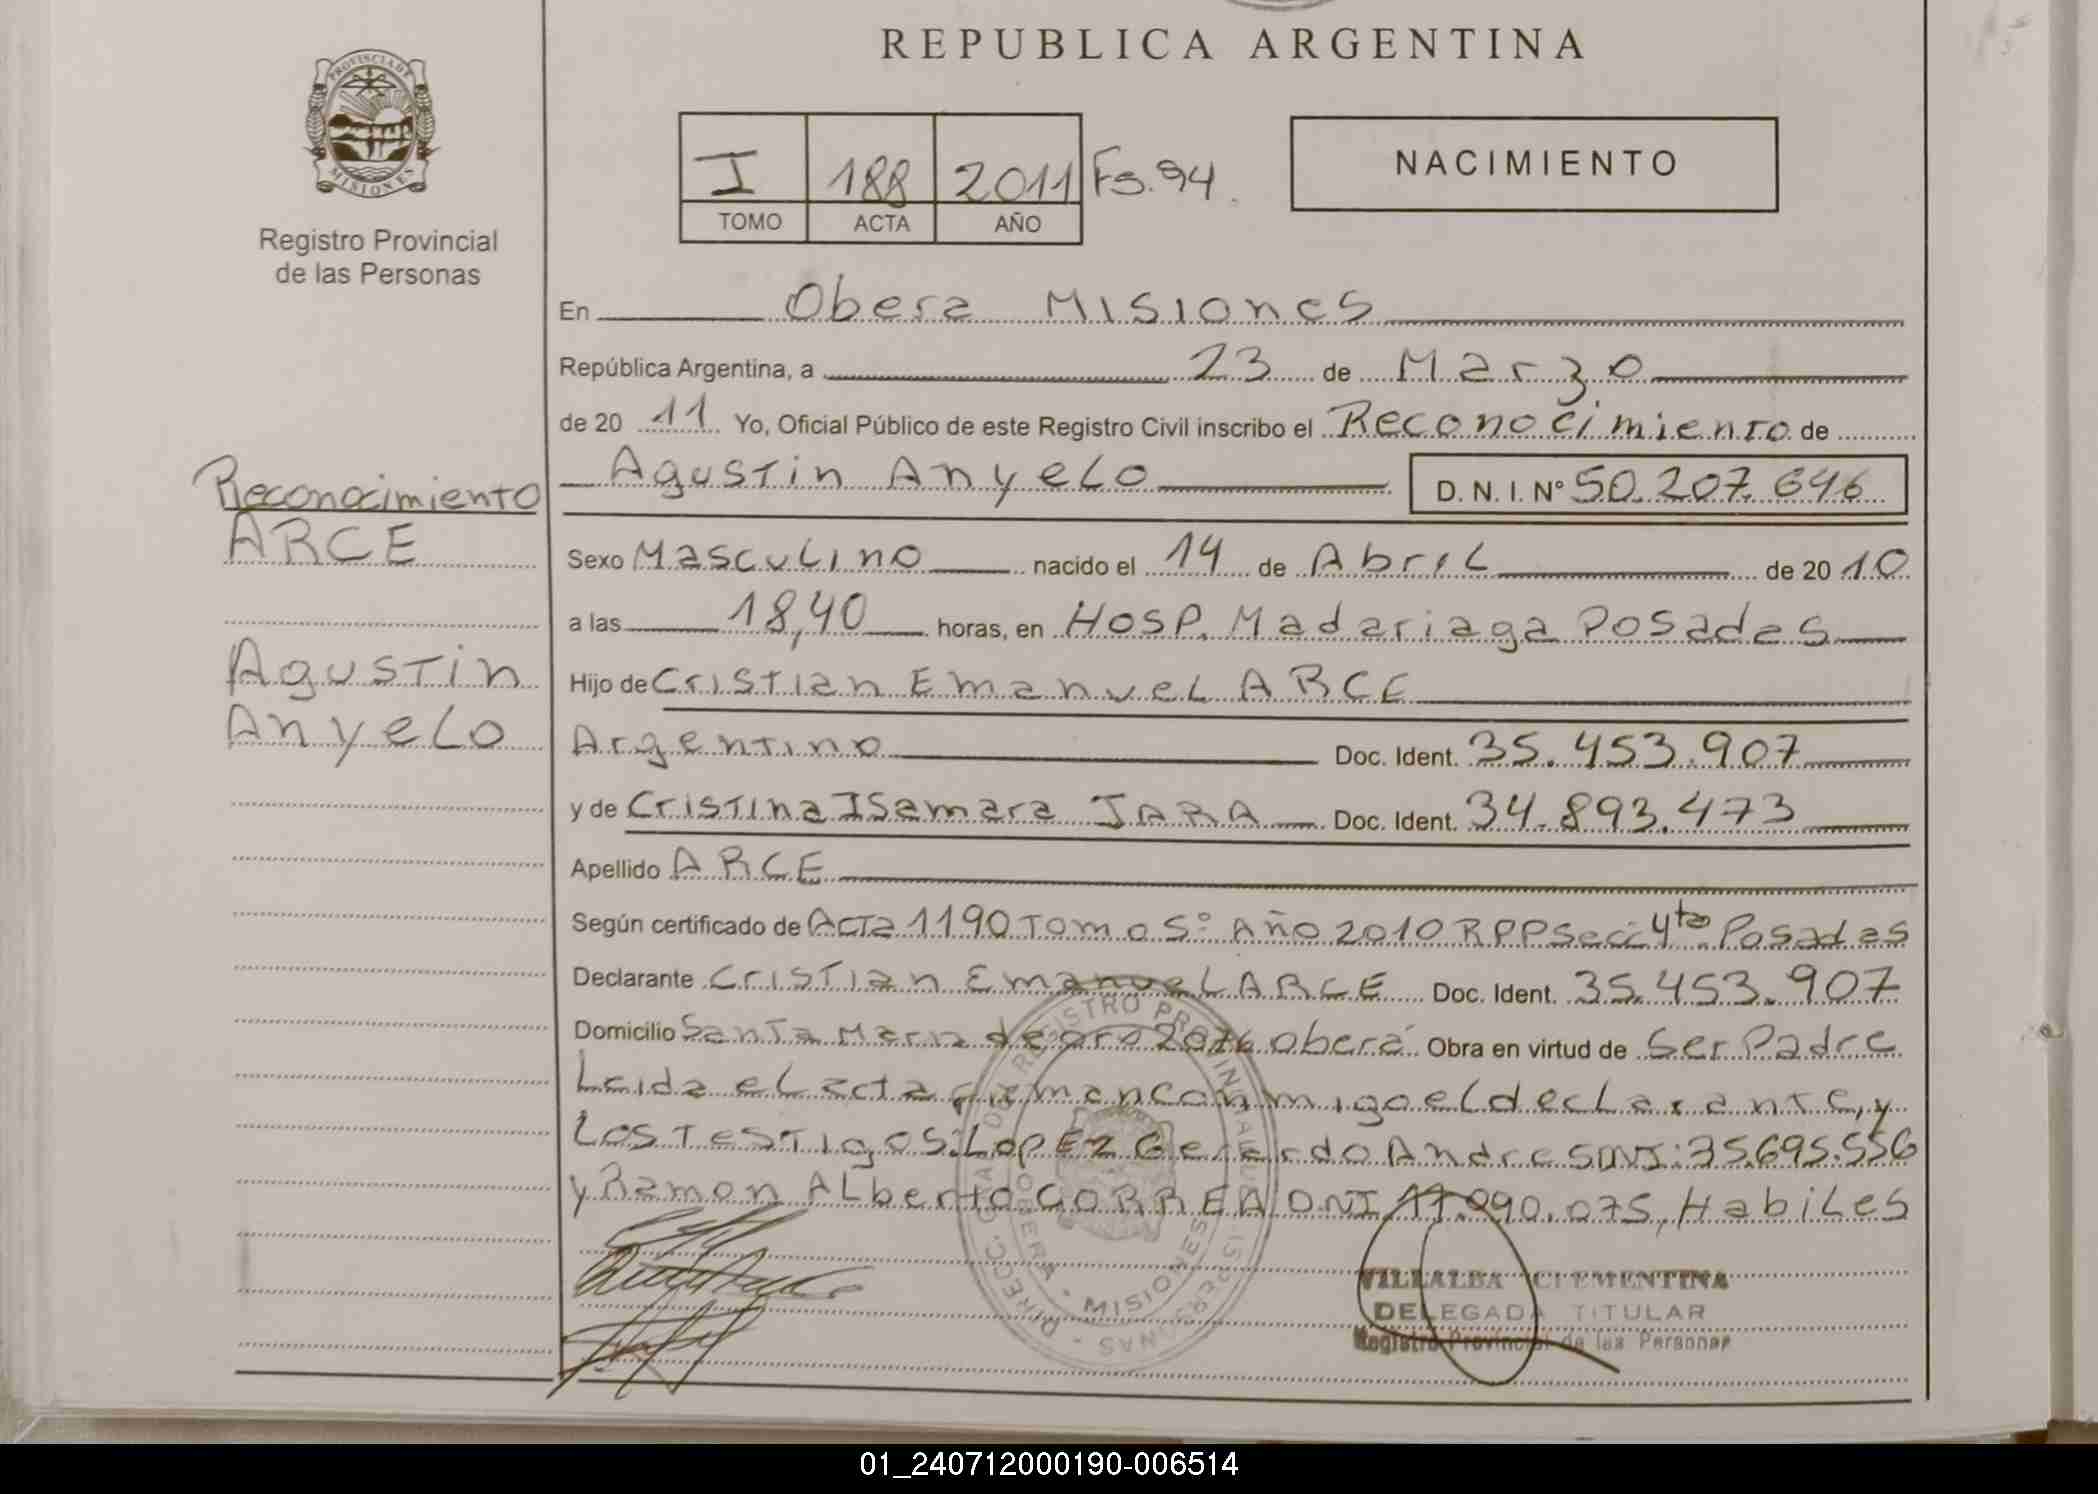 REPUBLICA ARGENTINA
PROVINCIA DE MISIONES
Registro Provincial
de las Personas
I 188 2011 Fs. 94.
TOMO ACTA AÑO
NACIMIENTO
En Obera Misiones
República Argentina, a 23 de Marzo
de 20 11 Yo, Oficial Público de este Registro Civil inscribo el Reconocimiento de
Agustin Anyelo D. N. I. Nº 50.207.646
Reconocimiento
ARCE
Agustin
Anyelo
Sexo Masculino nacido el 14 de Abril de 20 10
a las 18,40 horas, en Hosp. Madariaga Posadas
Hijo de Cristian Emanuel ARCE
Argentino Doc. Ident. 35.453.907
y de Cristina Isamara JARA Doc. Ident. 34.893.473
Apellido ARCE
Según certificado de Acta 1190 Tomo 5º Año 2010 RPP Secc 4ta Posadas
Declarante Cristian Emanuel ARCE Doc. Ident. 35.453.907
Domicilio Santa Maria de oro 2076 obera Obra en virtud de Ser Padre
Leida el acta firman conmigo el declarante, y
Los Testigos: LOPEZ Gerardo Andres DNI: 35.695.556
y Ramon Alberto CORREA DNI 17.990.075, Habiles
DIRECC. GRAL. DEL REGISTRO PROVINCIAL DE LAS PERSONAS
OBERA - MISIONES
VILLALBA CLEMENTINA
DELEGADA TITULAR
Registro Provincial de las Personas
01_240712000190-006514